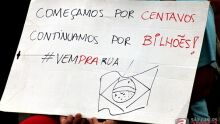 COMEÇAMOS POR CENTAVOS
CONTINUAMOS POR BILHÕES!
#VEMPRARUA!